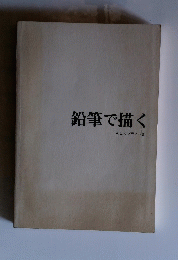 鉛筆で描く